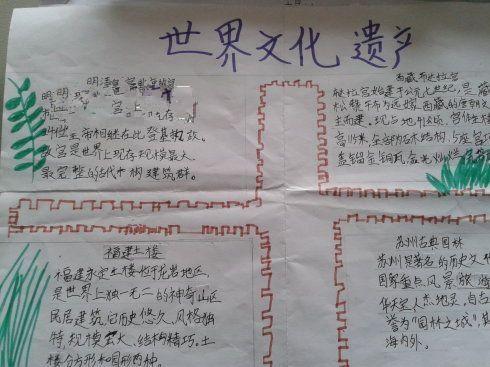 世界文化遗产
明清皇宫
帝相继在此登基执政。
故宫是世界上现存规模最大、
最完整的古代木构建筑群。
西藏布达拉宫
宫始建于公元七世纪，是藏
松赞干布为远嫁西藏的唐朝文
主而建。现占地41公顷，宫体主楼
高115米，全部为石木结构，5座宫顶
盖镏金铜瓦，金光灿烂
福建土楼
福建永定土楼位于龙岩地区，
是世界上独一无二的神奇山区
民居建筑，它历史悠久、风格独
特，规模宏大、结构精巧。土
楼分方形和圆形两种。
苏州古典园林
苏州是著名的历史文化
国家重点风景旅游
华天宝，人杰地灵，自古
誉为“园林之城”，其
海内外。